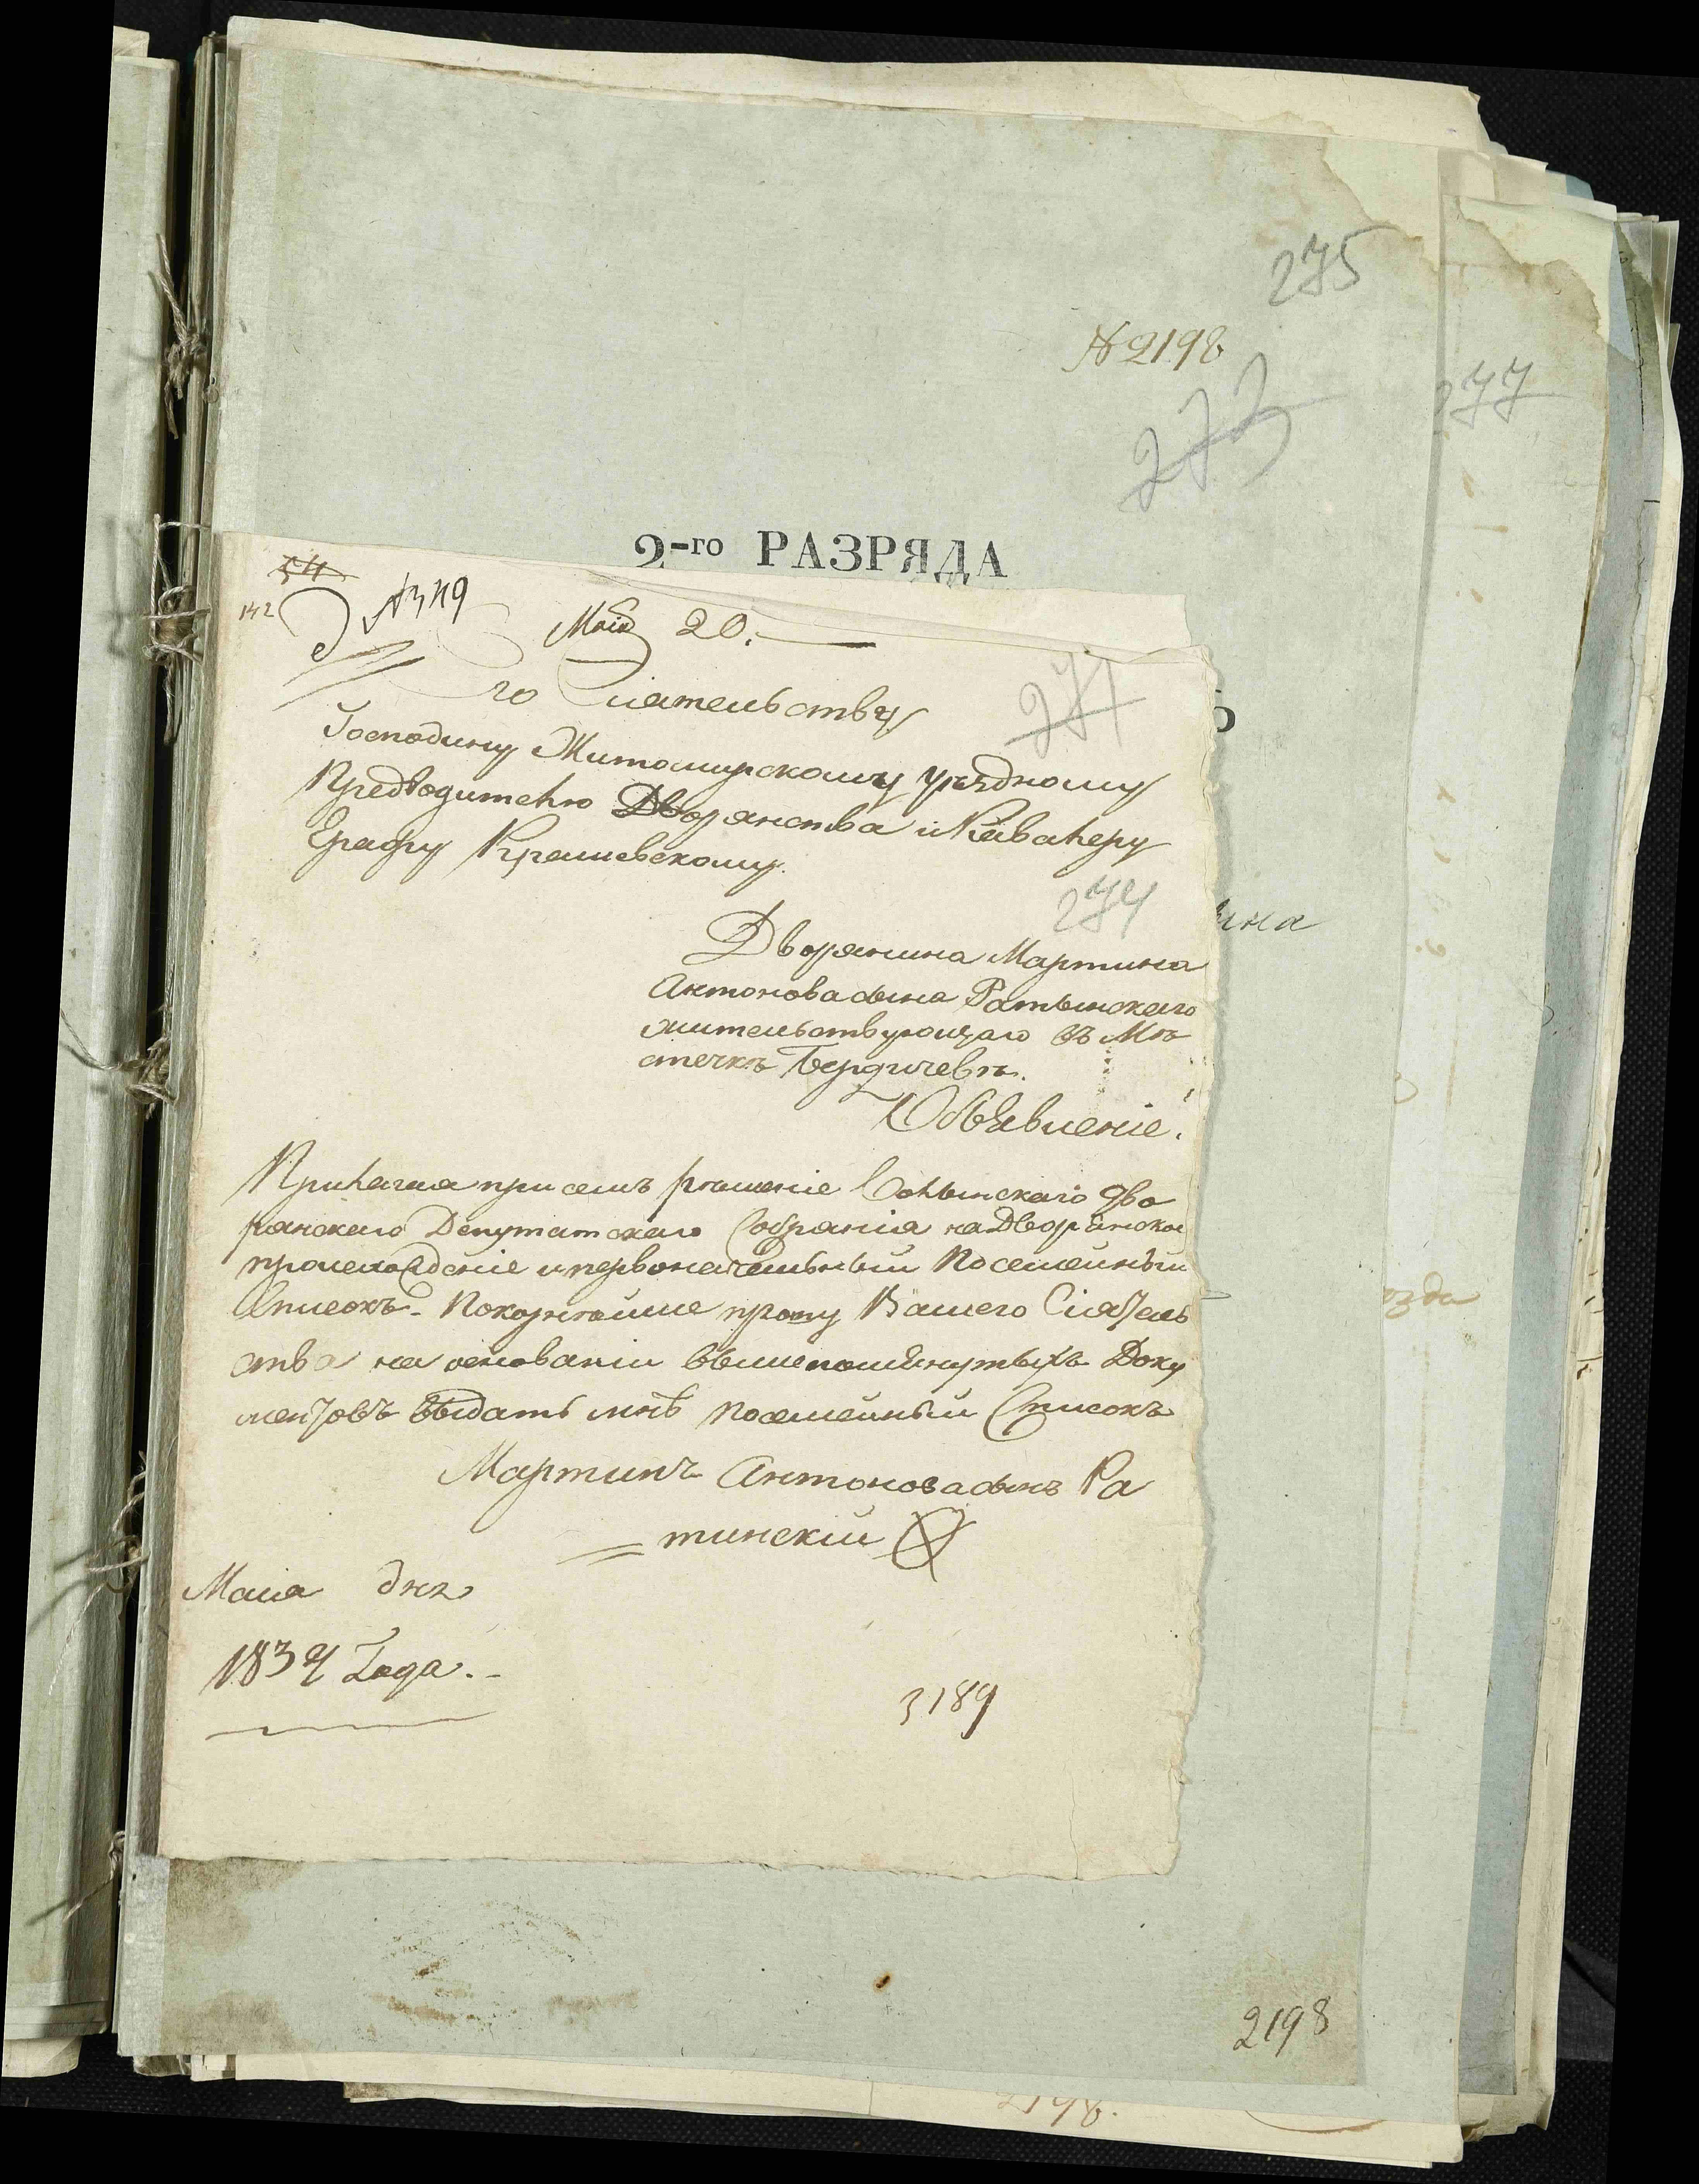 275
№ 2198
273
277
2-го РАЗРЯДА
142
№ 3119
Маія 20.
271
го Сіятельству
Господину Житомирскому уѣздному
Предводителю Дворянства и Кавалеру
Графу Крашевскому.
274
Дворянина Мартина
Антонова сына Ратынскаго
жительствующаго въ Мѣ
стечкѣ Бердичевѣ.
Объявленіе.
Прилагая при семъ рѣшеніе Волынскаго дво
рянскаго Депутатскаго Собранія на Дворянское
происхожденіе и первоначальный Посемейный
Списокъ. Покорнѣйше прошу Вашего Сіятель
ства на основаніи вышепомянутыхъ Доку
ментовъ выдать мнѣ посемейный Списокъ
Мартинъ Антоновъ сынъ Ра
тинскій
Маия дня
1834 Года.
3189
ына
2198
2198.